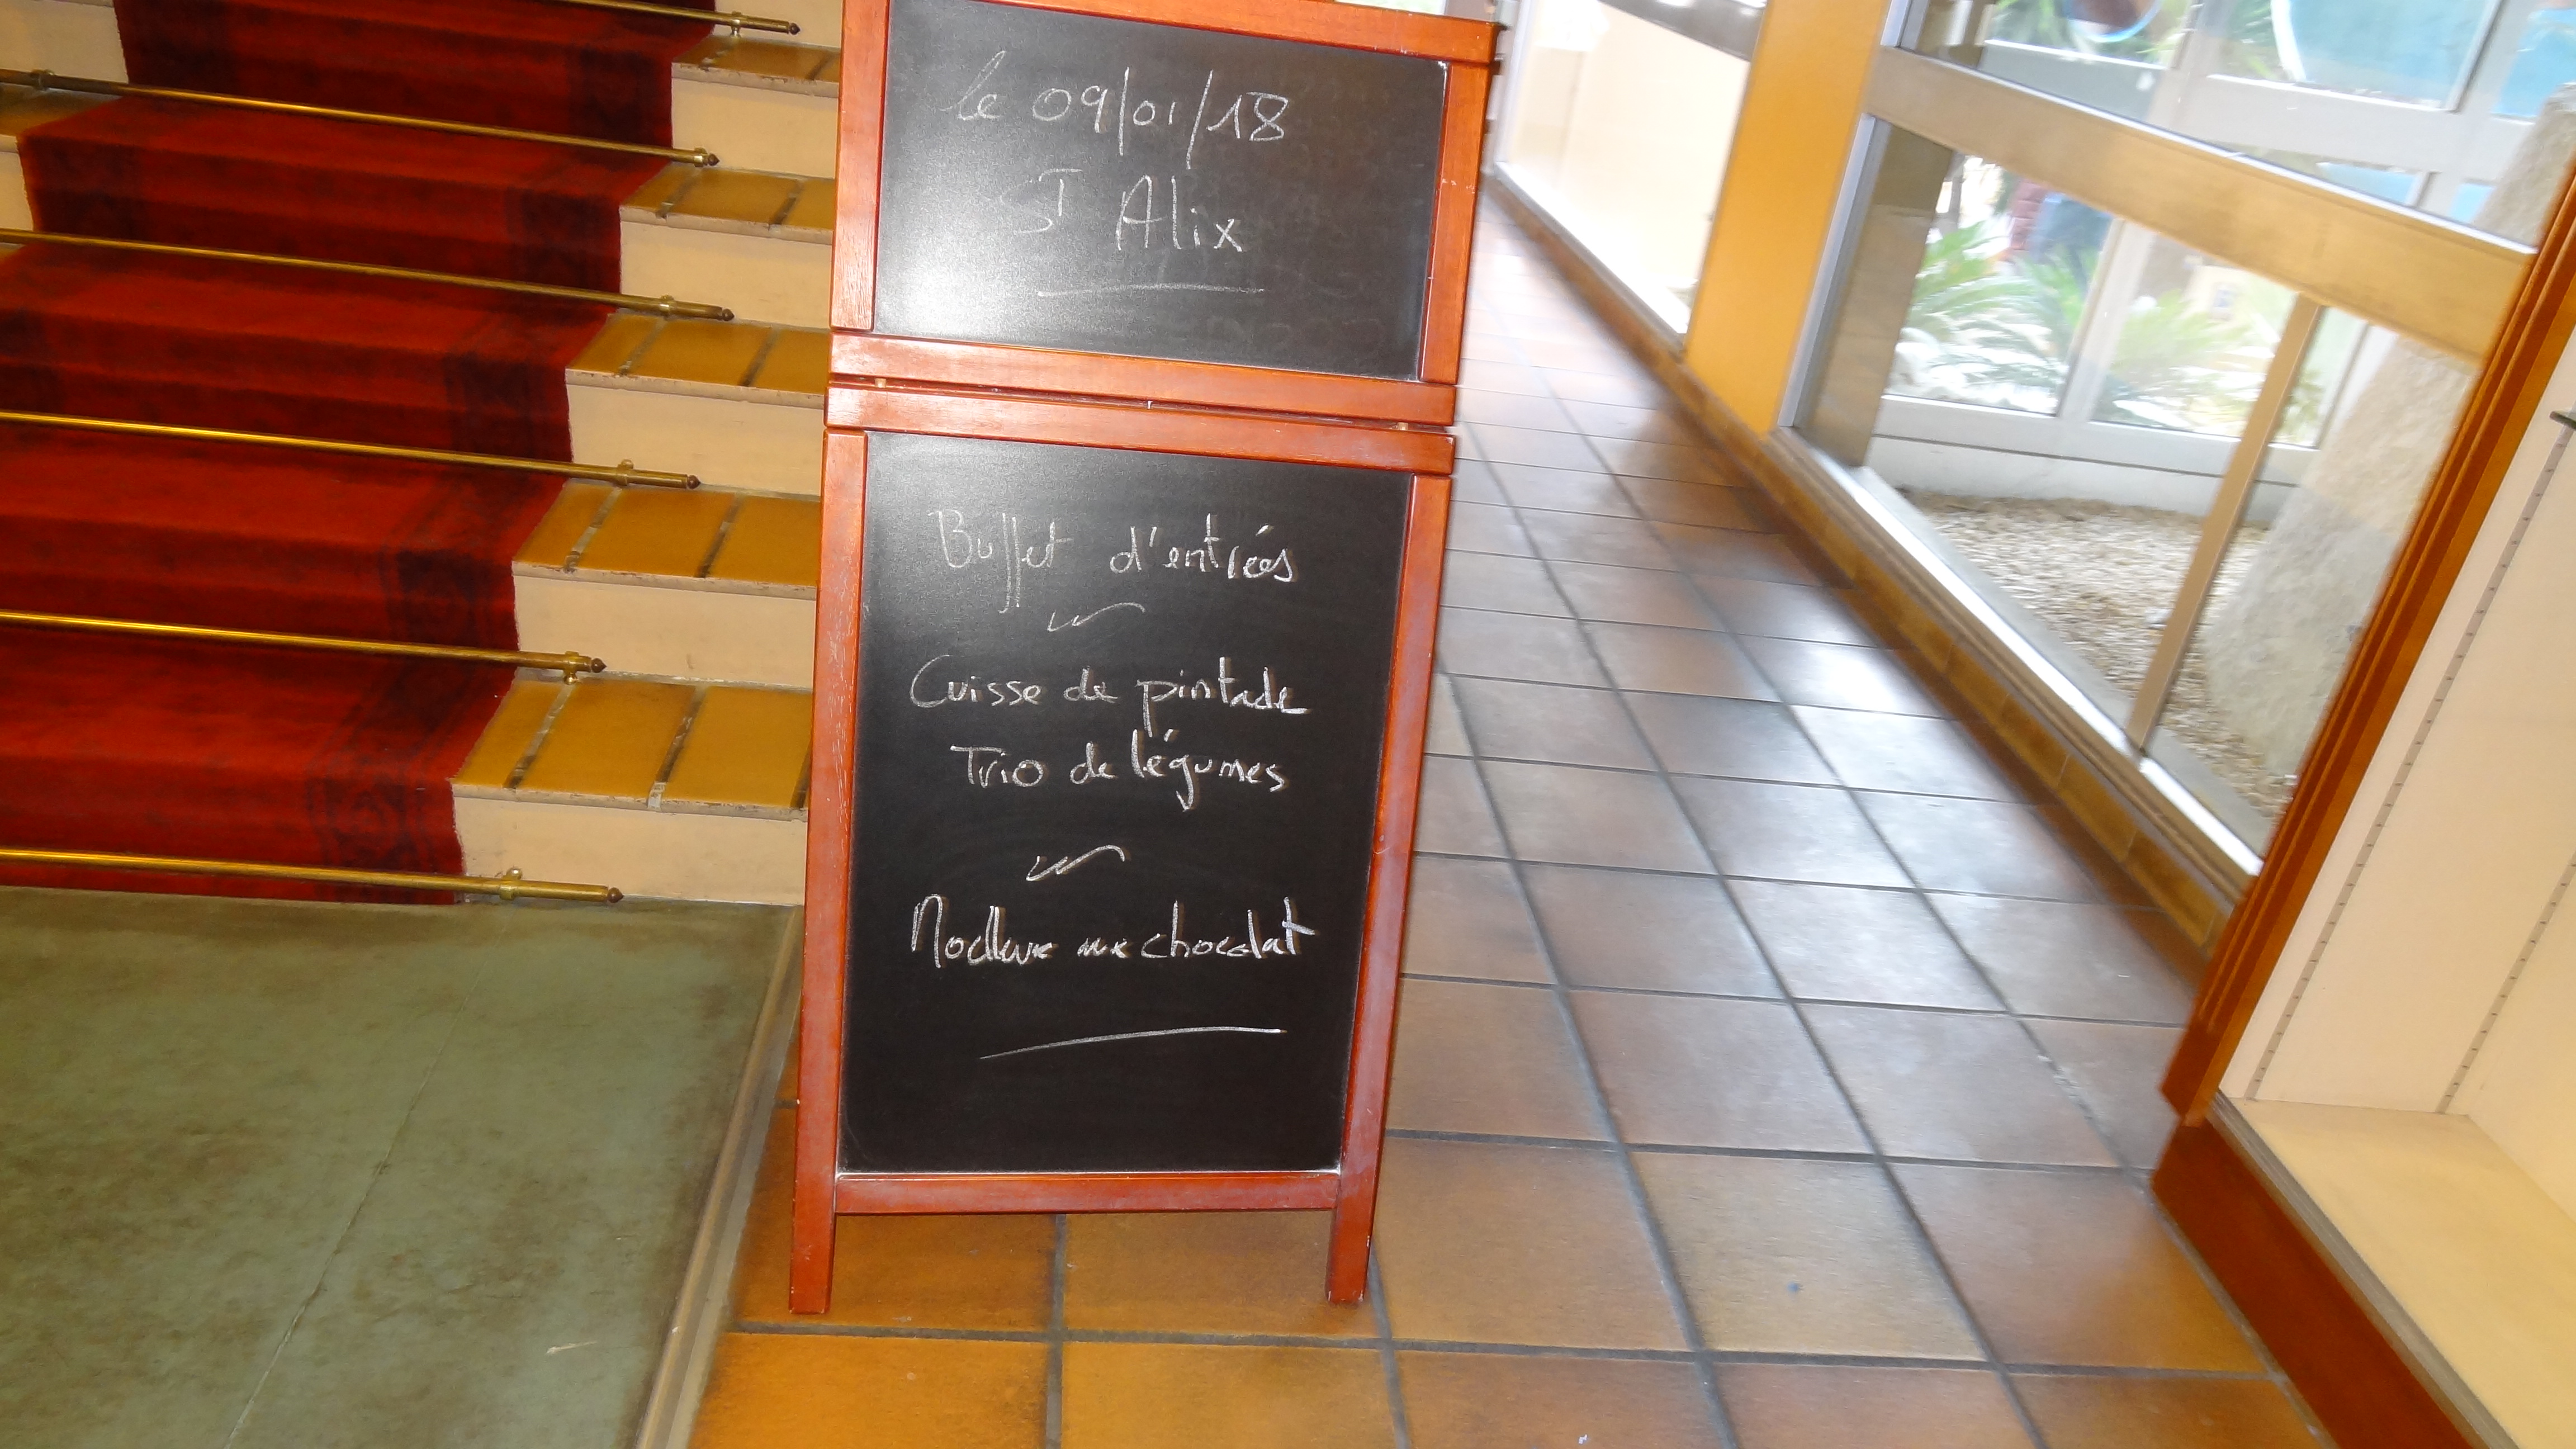 le 09/01/18
ST Alix
Buffet d'entrées
Cuisse de pintade
Trio de légumes
Moelleux aux chocolat